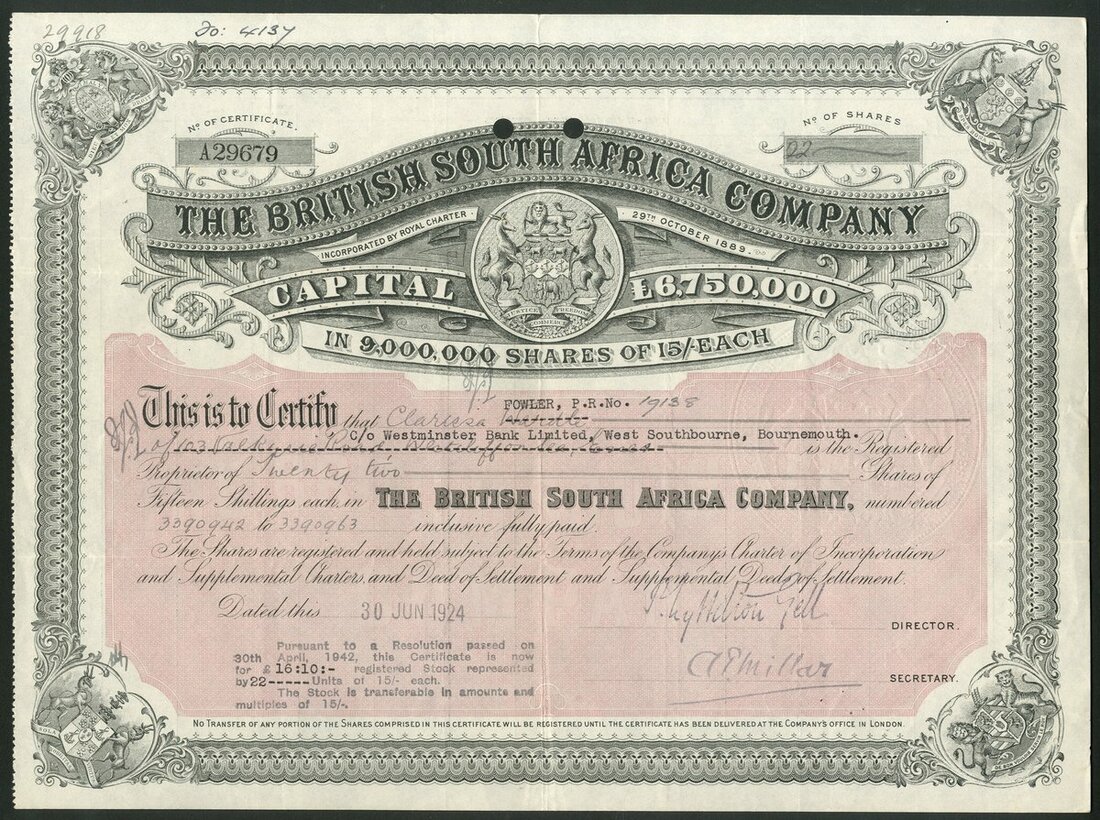 29918 do: 4137
Nº OF CERTIFICATE.
A29679
Nº OF SHARES
22
THE BRITISH SOUTH AFRICA COMPANY
INCORPORATED BY ROYAL CHARTER 29TH OCTOBER 1889.
CAPITAL £6,750,000
SERVICE FREEDOM
COMMERCE
IN 9,000,000 SHARES OF 15/- EACH
FOWLER, P.R.No. 19138
This is to Certify that Clarissa
C/o Westminster Bank Limited, West Southbourne, Bournemouth.
of 103 Valkyrie Road is the Registered
Proprietor of Twenty two Shares of
Fifteen Shillings each in THE BRITISH SOUTH AFRICA COMPANY, numbered
3390942 to 3390963 inclusive fully paid.
The Shares are registered and held subject to the Terms of the Company's Charter of Incorporation
and Supplemental Charters and Deed of Settlement and Supplemental Deeds of Settlement.
Dated this 30 JUN 1924
DIRECTOR.
Pursuant to a Resolution passed on
30th April, 1942, this Certificate is now
for £16:10:- registered Stock represented
by 22-----Units of 15/- each.
The Stock is transferable in amounts and
multiples of 15/-.
A E Millar
SECRETARY.
NO TRANSFER OF ANY PORTION OF THE SHARES COMPRISED IN THIS CERTIFICATE WILL BE REGISTERED UNTIL THE CERTIFICATE HAS BEEN DELIVERED AT THE COMPANY'S OFFICE IN LONDON.